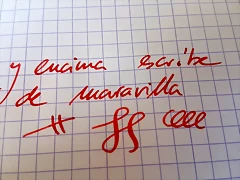 y encima escribe
y de maravilla
# §§ eeee